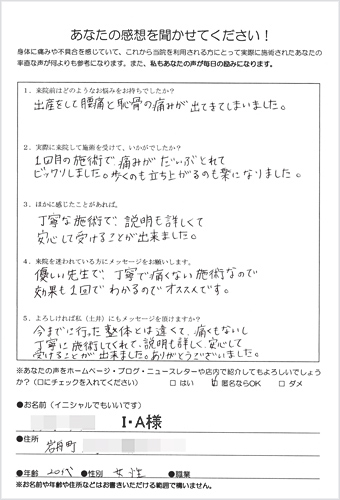 あなたの感想を聞かせてください!
身体に痛みや不具合を感じていて、これから当院を利用される方にとって実際に施術されたあなたの
率直な声が何よりも参考になります。また、私もあなたの声が毎日の励みになります。
1、来院前はどのようなお悩みをお持ちでしたか?
出産をして腰痛と恥骨の痛みが出てきてしまいました。
2、実際に来院して施術を受けて、いかがでしたか?
1回目の施術で、痛みがだいぶとれて
ビックリしました。歩くのも立ち上がるのも楽になりました。
3、ほかに感じたことがあれば。
丁寧な施術で、説明も詳しくて
安心して受けることが出来ました。
4、来院を迷われている方にメッセージをお願いします。
優しい先生で、丁寧で痛くない施術なので
効果も1回でわかるのでオススメです。
5、よろしければ私(土井)にもメッセージを頂けますか?
今までに行った整体とは違くて、痛くもないし
丁寧に施術してくれて、説明も詳しく、安心して
受けることが出来ました。ありがとうございました。
※あなたの声をホームページ・ブログ・ニュースレターや店内で紹介してもよろしいでしょう
か?(□にチェックを入れてください) □ はい ☑ 匿名ならOK □ ダメ
●お名前(イニシャルでもいいです)
I・A様
●住所
岩月町
●年齢 20代 ●性別 女性 ●職業
※お名前や年齢や住所などはお書きいただける範囲で構いません。